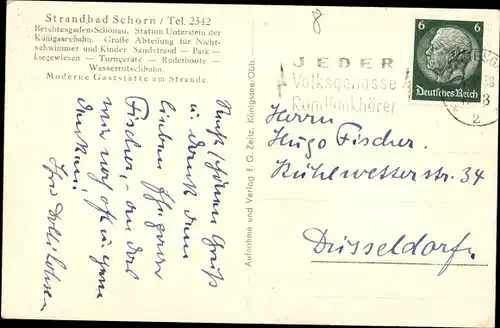 Strandbad Schorn / Tel. 2542
Berchtesgaden-Schönau, Station Unterstein der
Königsseebahn. Große Abteilung für Nicht-
schwimmer und Kinder Sandstrand — Park —
Liegewiesen — Turngeräte — Ruderboote —
Wasserrutschbahn.
Moderne Gaststätte am Strande.
schönen Gruß
u. Dank dem
lieben
Fischer, an das
wir noch oft u. gern
denken!
Aufnahme und Verlag F. G. Zeitz, Königssee/Obb.
JEDER
Volksgenosse
Rundfunkhörer
6 6
Deutsches Reich
2
Herrn
Hugo Fischer.
Kühlwetterstr. 34
Düsseldorf.